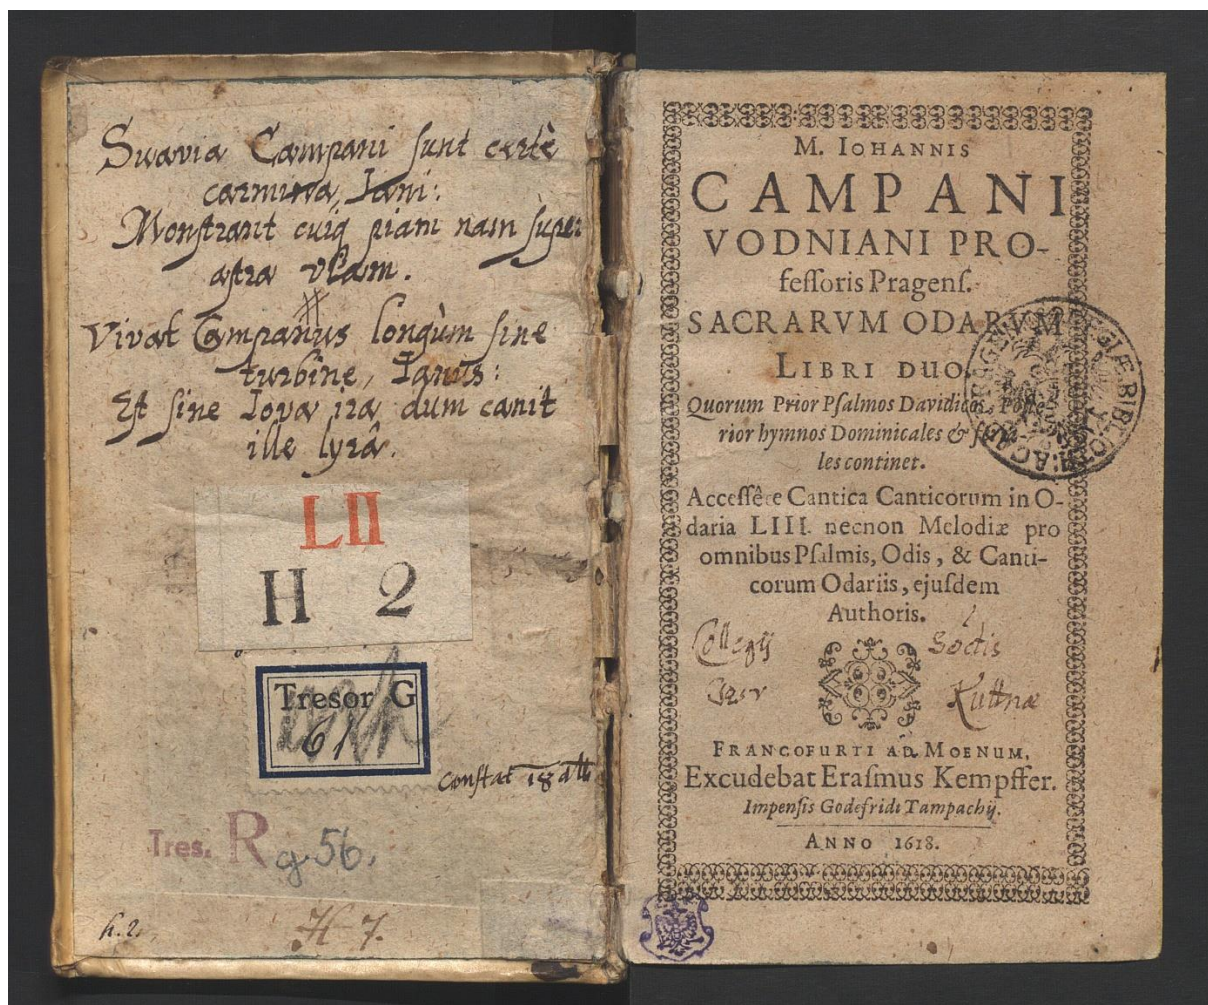 Suavia Campani sunt certè
carmina, Iani:
Monstrant cuiq piam nam super
astra viam.
Vivat Campanus longùm sine
turbine, Ianus:
Est sine Iova ira dum canit
ille lyrâ.
LII
H 2
Tresor G
61
constat 18
Tres. R g. 56.
h. 2.
H 7.
M. IOHANNIS
CAMPANI
VODNIANI PRO-
feſſoris Pragenſ.
SACRARVM ODARVM
LIBRI DUO.
Quorum Prior Pſalmos Davidicos, Poſte-
rior hymnos Dominicales & feria-
les continet.
Acceſſêre Cantica Canticorum in O-
daria LIII. necnon Melodiæ pro
omnibus Pſalmis, Odis, & Canti-
corum Odariis, ejuſdem
Authoris.
Collegij Soctis
Kuttnæ
FRANCOFURTI AD MOENUM,
Excudebat Eraſmus Kempffer.
Impenſis Godefridi Tampachij.
ANNO 1618.